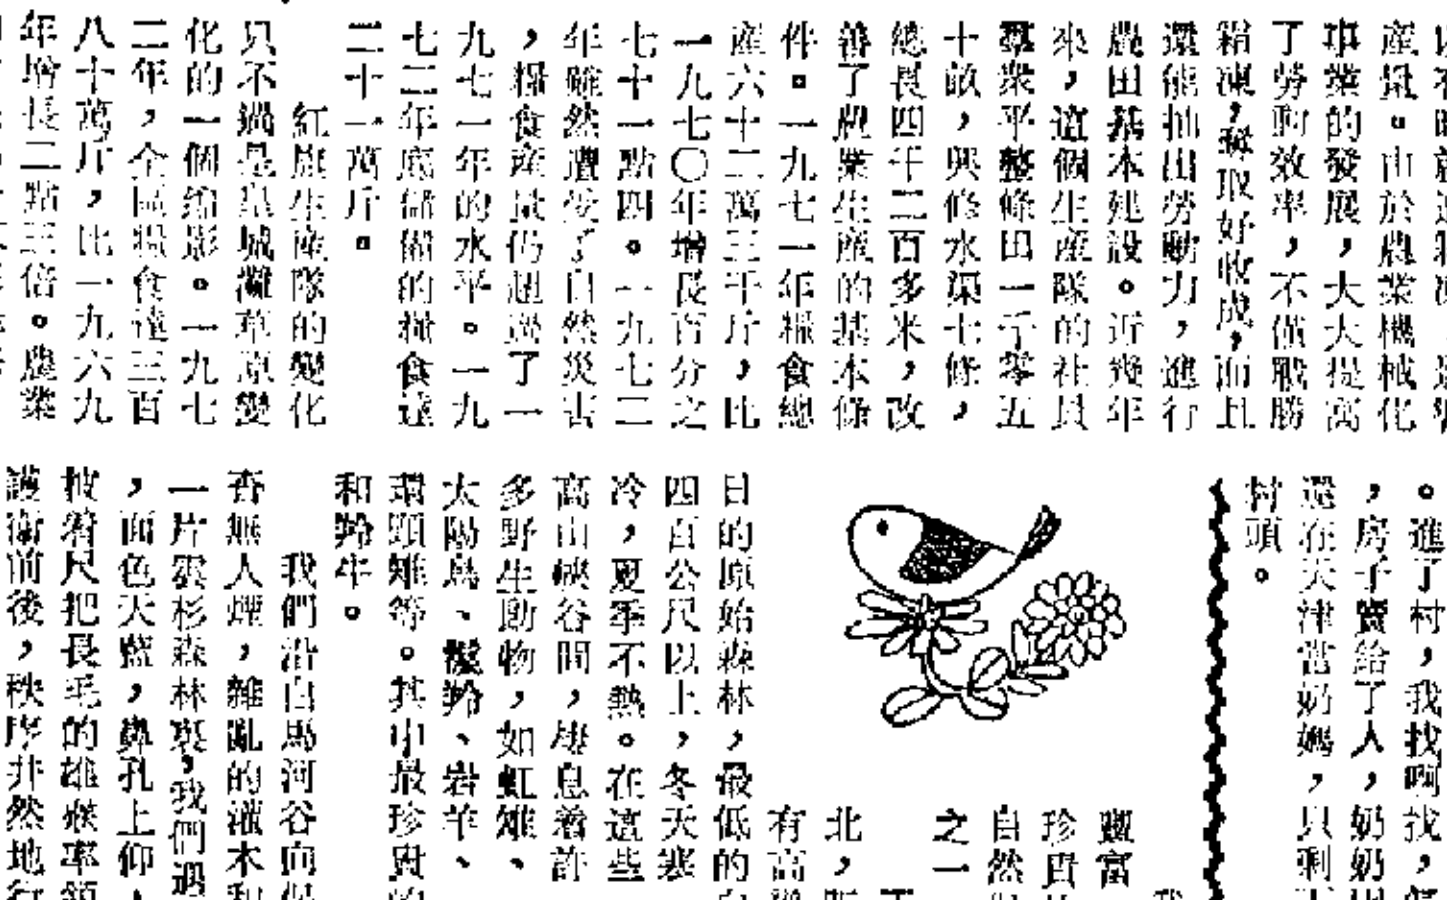 產量。由於農業機械化
事業的發展,大大提高
了勞動效率,不僅戰勝
霜凍,奪取好收成,而且
還能抽出勞動力,進行
農田基本建設。近幾年
來,這個生產隊的社員
羣衆平整條田一千零五
十畝,興修水渠條,
總長四千二百多米,改
善了農業生產的基本條
件。一九七一年糧食總
產六十二萬三千斤,比
一九七〇年增長百分之
七十一點四。一九七二
年雖然遭受了自然災害
,糧食產量仍超過了一
九七一年的水平。一九
七二年底儲備的糧食達
三十一萬斤。
紅旗生產隊的變化
只不過是皇城灘草原變
化的一個縮影。一九七
二年,全區糧食達三百
八十萬斤,比一九六九
年增長二點三倍。農業
。進了村,我找啊找,
,房子賣給了人,奶奶
還在天津當奶媽,只剩
村頭。
豐富
珍貴
自然
之一
北,
有高
目的原始森林,最低的
四百公尺以上,冬天寒
冷,夏季不熱。在這些
高山峽谷間,棲息着許
多野生動物,如虹雉、
太陽鳥、鬣羚、岩羊、
環頸雉等。其中最珍貴的
和羚牛。
我們沿白馬河谷向
杳無人煙,雜亂的灌木和
一片雲杉森林裏,我們遇
,面色天藍,鼻孔上仰,
披着尺把長毛的雄猴率領
護衛前後,秩序井然地行